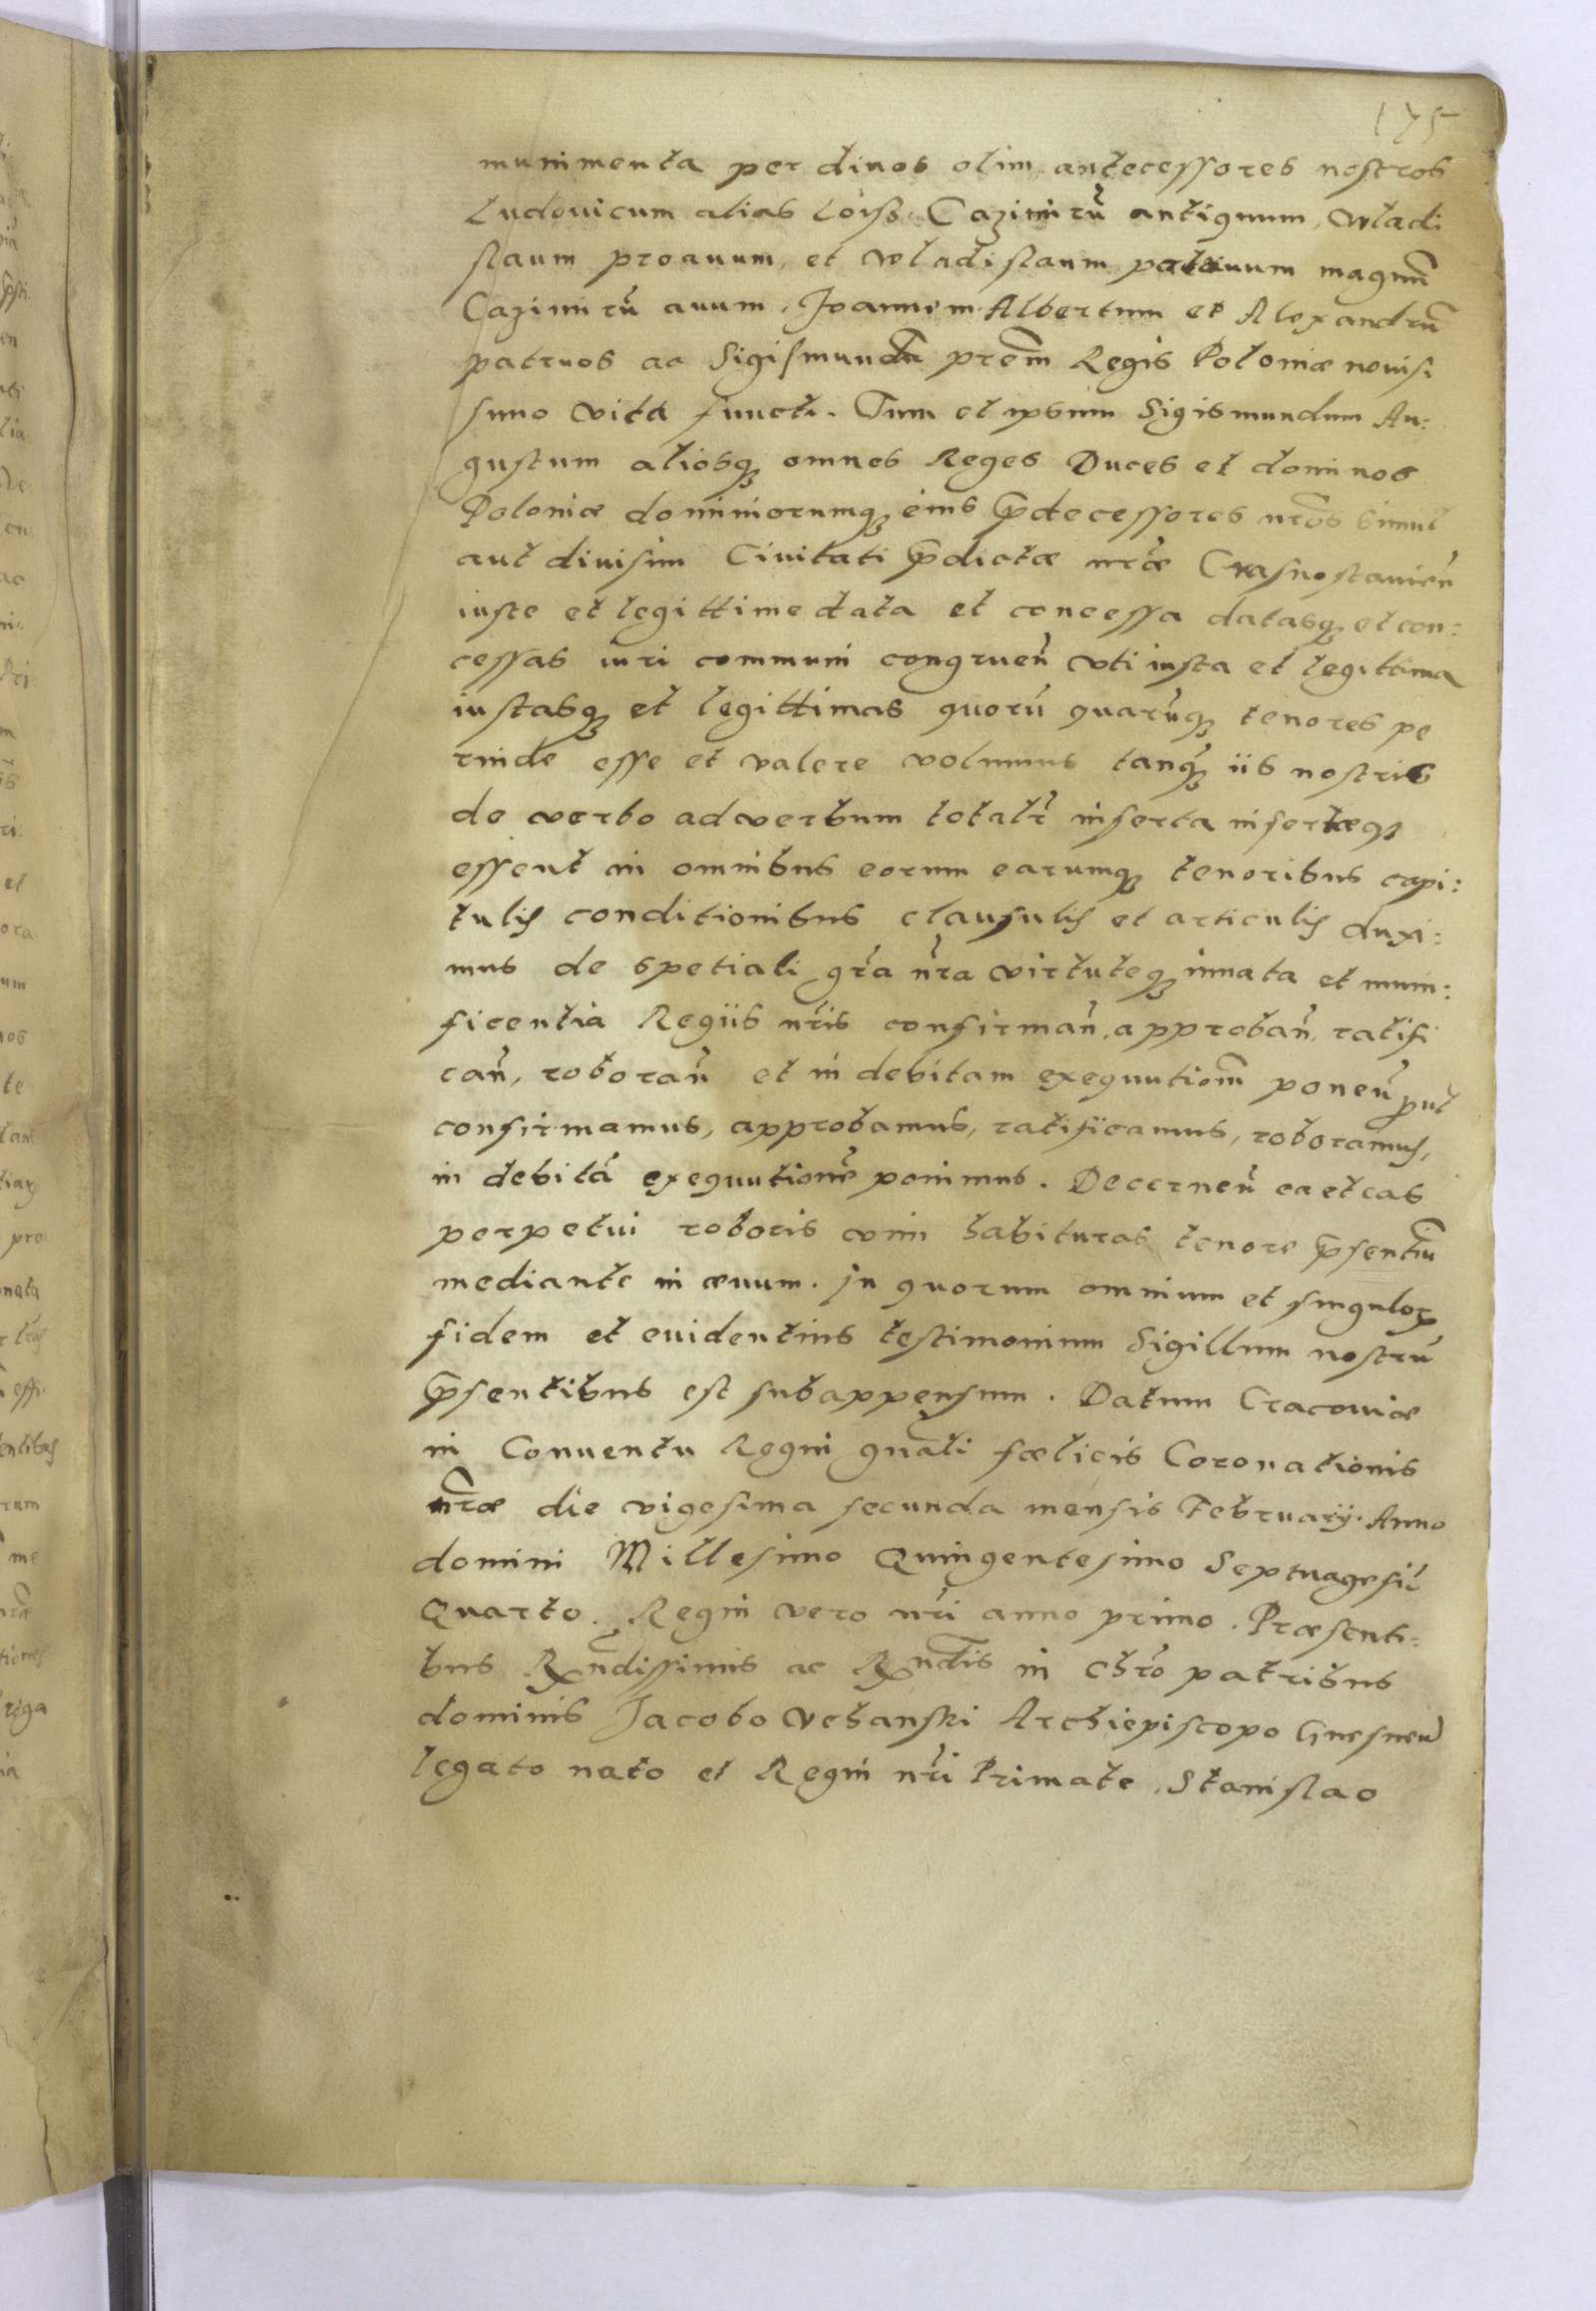 175
munimenta per diuos olim antecessores nostros
Ludouicum alias Loisz. Cazimirũ antiquum, Vladi
slaum proauum, et Vladislaum patruum magnũ
Cazimirũ auum, Joannem Albertum et Alexandrũ
patruos ac Sigismundũ prem̃ Regis Poloniæ nouis
simo vita functi. Tum et ipsum Sigismundum Au:
gustum aliosq; omnes Reges Duces et dominos
Poloniæ dominiorumq; eius p̃decessores nrõs simul
aut diuisim Ciuitati p̃dictæ nrã̃e Crasnostauieñ
iuste et legittime data et concessa datasq; et con:
cessas iuri communi congrueñ vti iusta et legittima
iustasq; et legittimas quorũ quarũq; tenores pe
rinde esse et valere volumus tanq̃; iis nostris
de verbo ad verbum totalr̃ inserta insertæq;
essent in omnibus eorum earumq; tenoribus capi:
tulis conditionibus clausulis et articulis duxi:
mus de spetiali gr̃a nr̃a virtuteq; innata et muni:
ficentia Regiis nr̃is confirmañ, approbañ, ratifi
cañ, roborañ et in debitam exequutiom̃ poneñ p̃ut
confirmamus, approbamus, ratificamus, roboramus,
in debitã exequutionẽ ponimus. Decerneñ ea et eas
perpetui roboris vim habituras tenore p̃sentiũ
mediante in æuum. In quorum omnium et singulor;
fidem et euidentius testimonium Sigillum nostrũ
p̃sentibus est subappensum. Datum Cracouiæ
in Conuentu Regni gnãli fœlicis Coronationis
nrã̃e die vigesima secunda mensis Februarij. Anno
domini Millesimo Quingentesimo Septuagesiõ
Quarto. Regni vero nr̃i anno primo. Præsenti:
bus Rx̃ndissimis ac Rx̃ndis in Chrõ patribus
dominis Jacobo Vchanski Archiepiscopo Gnesneñ
legato nato et Regni nr̃i Primate, Stanislao